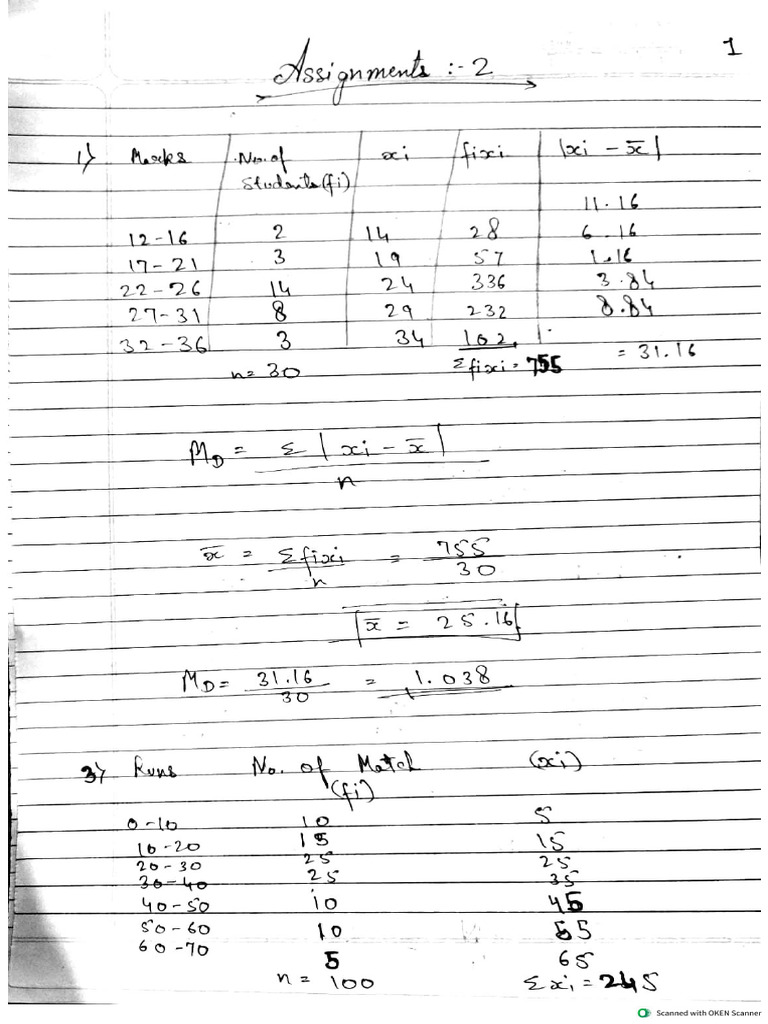 1
Assignments :- 2
1) Marks No. of xi fixi |xi - x̄|
Students (fi)
11.16
12-16 2 14 28 6.16
17-21 3 19 57 1.16
22-26 14 24 336 3.84
27-31 8 29 232 8.84
32-36 3 34 102
n= 30 Σfixi = 755 = 31.16
MD = Σ |xi - x̄|
n
x̄ = Σfixi = 755
n 30
x̄ = 25.16
MD = 31.16 = 1.038
30
3) Runs No. of Match (xi)
(fi)
0-10 10 5
10-20 15 15
20-30 25 25
30-40 25 35
40-50 10 45
50-60 10 55
60-70 5 65
n = 100 Σxi = 245
Scanned with OKEN Scanner